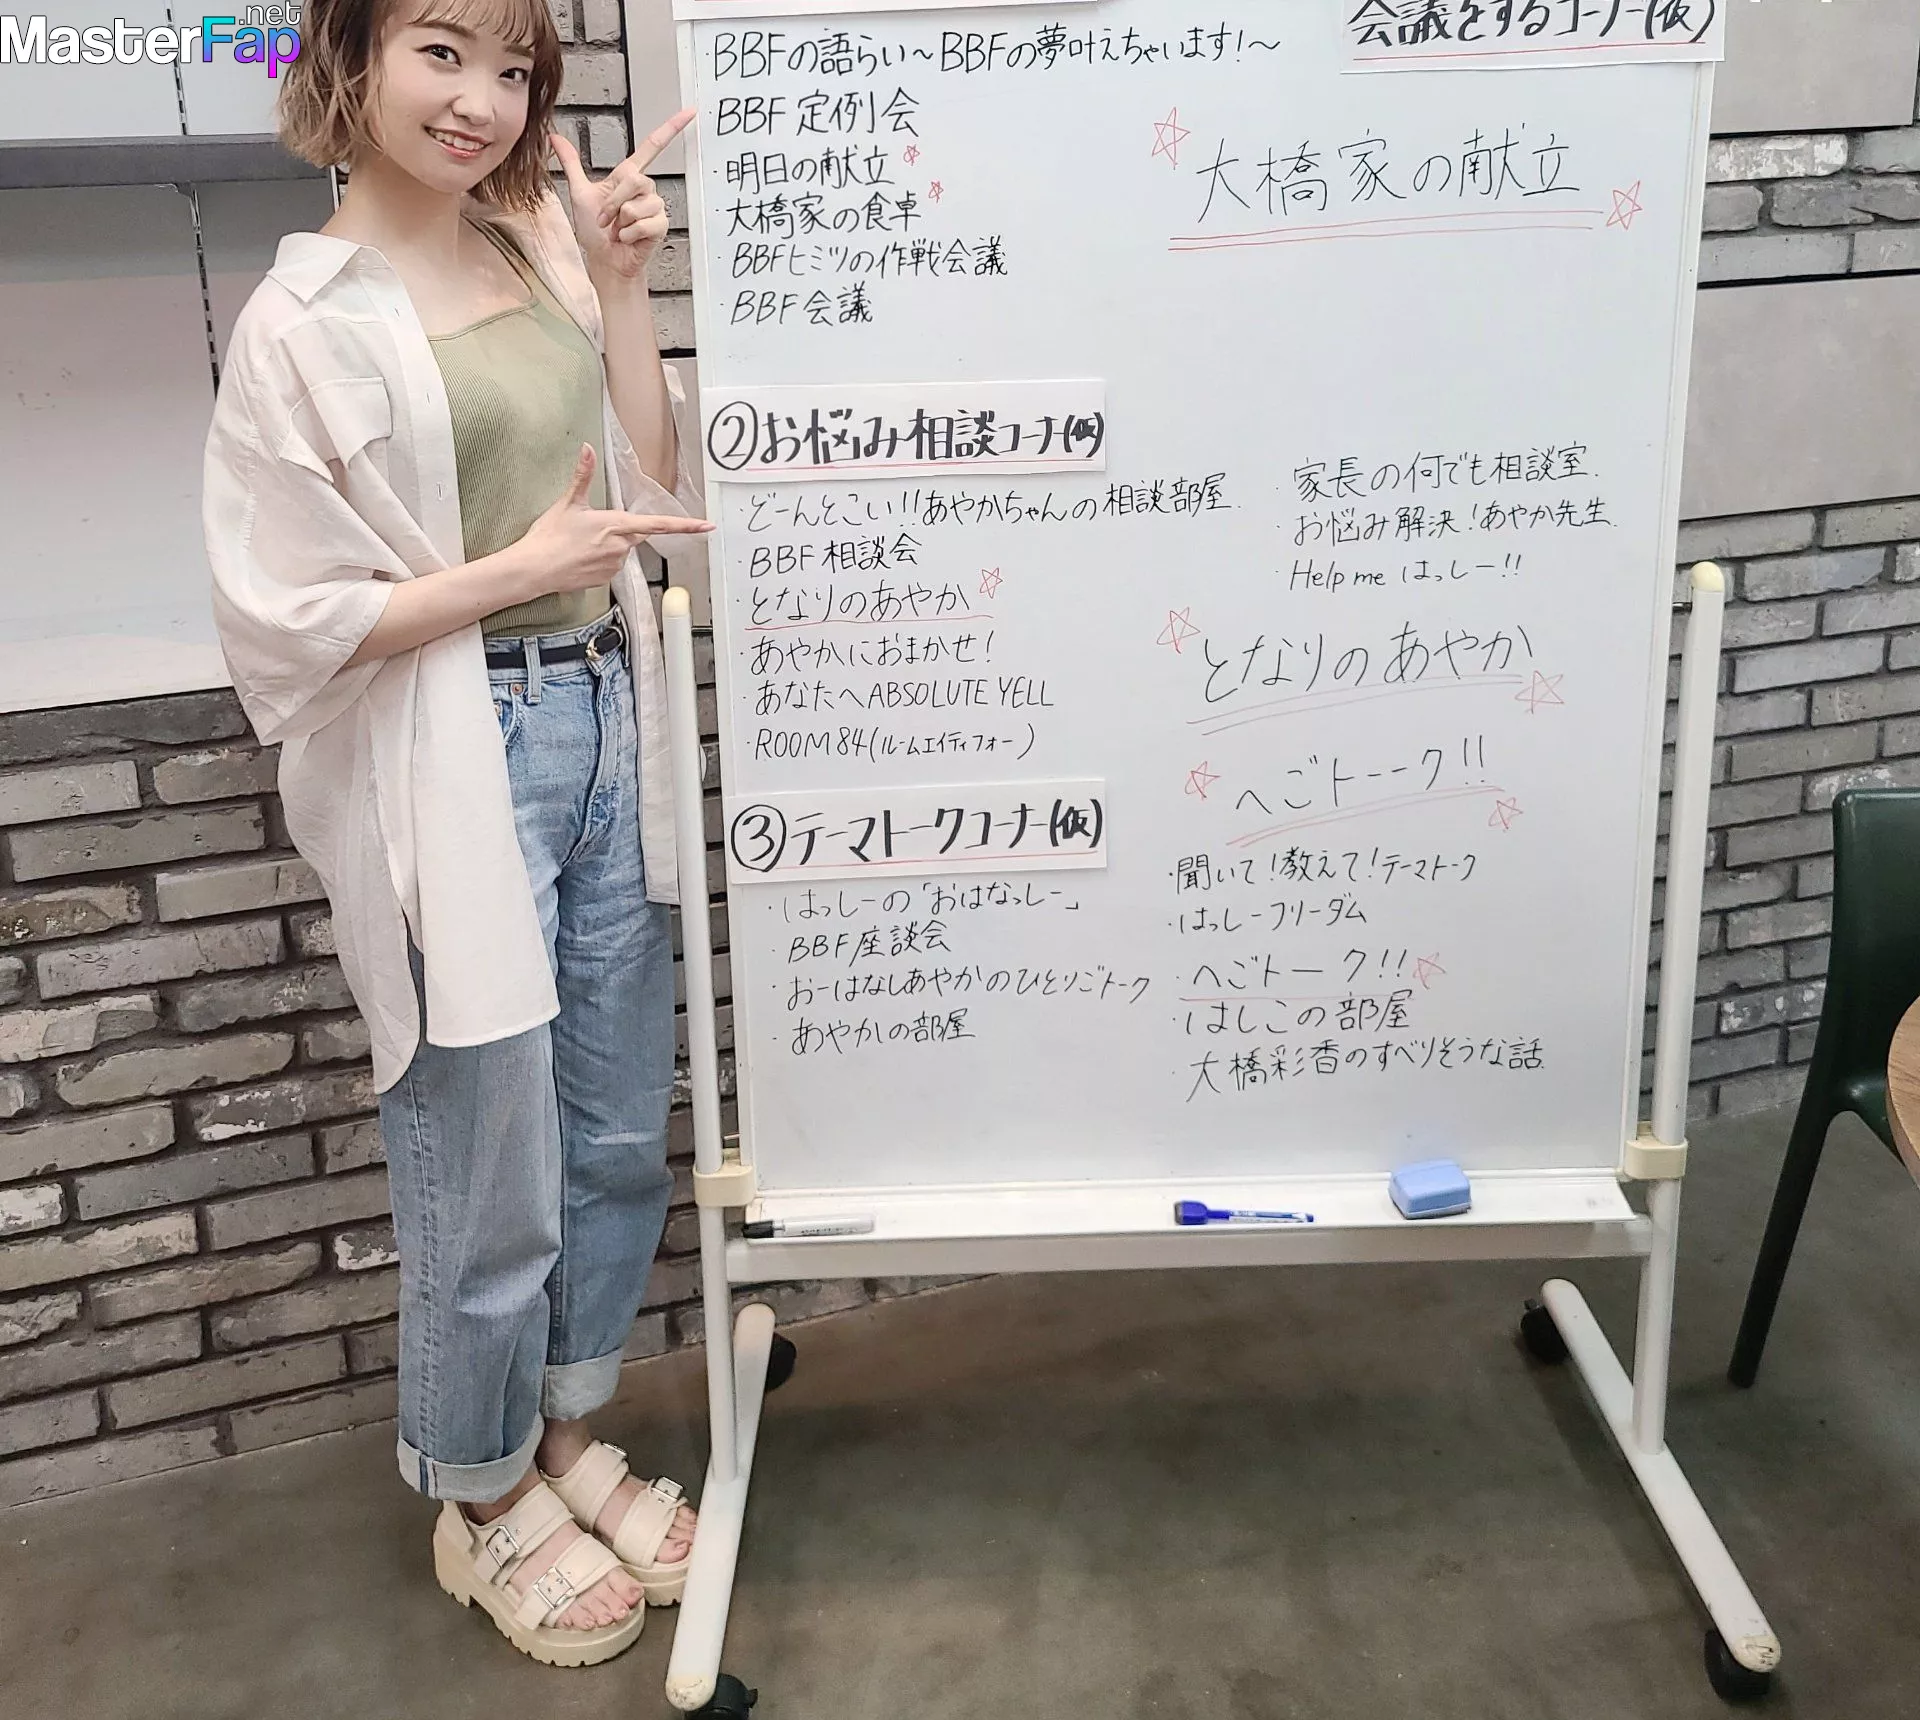 MasterFap.net
会議をするコーナー(仮)
・BBFの語らい〜BBFの夢叶えちゃいます!〜
・BBF 定例会
・明日の献立☆
・大橋家の食卓☆
・BBFヒミツの作戦会議
・BBF会議
☆大橋家の献立☆
②お悩み相談コーナー(仮)
・どーんとこい!!あやかちゃんの相談部屋.
・BBF相談会
・となりのあやか☆
・あやかにおまかせ!
・あなたへABSOLUTE YELL
・ROOM84(ルームエイティフォー)
・家長の何でも相談室.
・お悩み解決!あやか先生.
・Help me はっしー!!
☆となりのあやか☆
③テーマトークコーナー(仮)
・はっしーの「おはなっしー」
・BBF座談会
・おーはなしあやかのひとりごトーク
・あやかの部屋
☆へごトーーク!!☆
・聞いて!教えて!テーマトーク
・はっしーフリーダム
・へごトーーク!!☆
・はしこの部屋
・大橋彩香のすべりそうな話